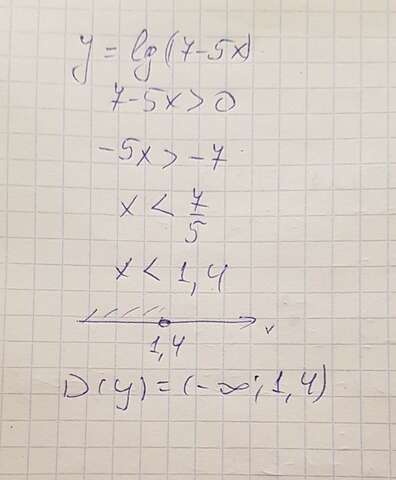 y = lg(7-5x)
7-5x>0
-5x>-7
x < 7/5
x < 1,4
x
1,4
D(y)=(-∞;1,4)